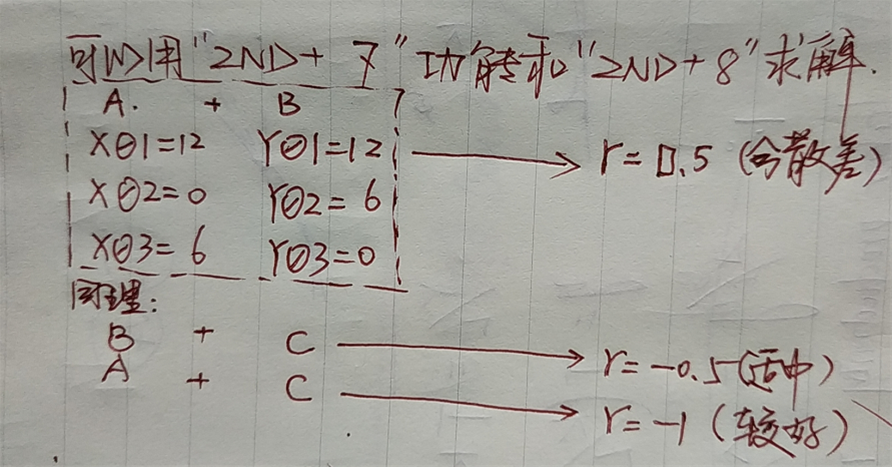 可以用"2ND+7"功能和"2ND+8"求解.
A. + B
X01=12 Y01=12 → r=0.5 (分散差)
X02=0 Y02=6
X03=6 Y03=0
同理:
B + C → r=-0.5(适中)
A + C → r=-1(较好)